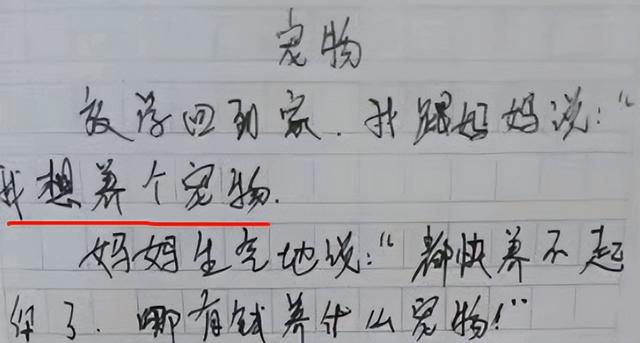 宠物
放学回到家.我跟妈妈说:“
我想养个宠物.
妈妈生气地说:“都快养不起
你了.哪有钱养什么宠物!”